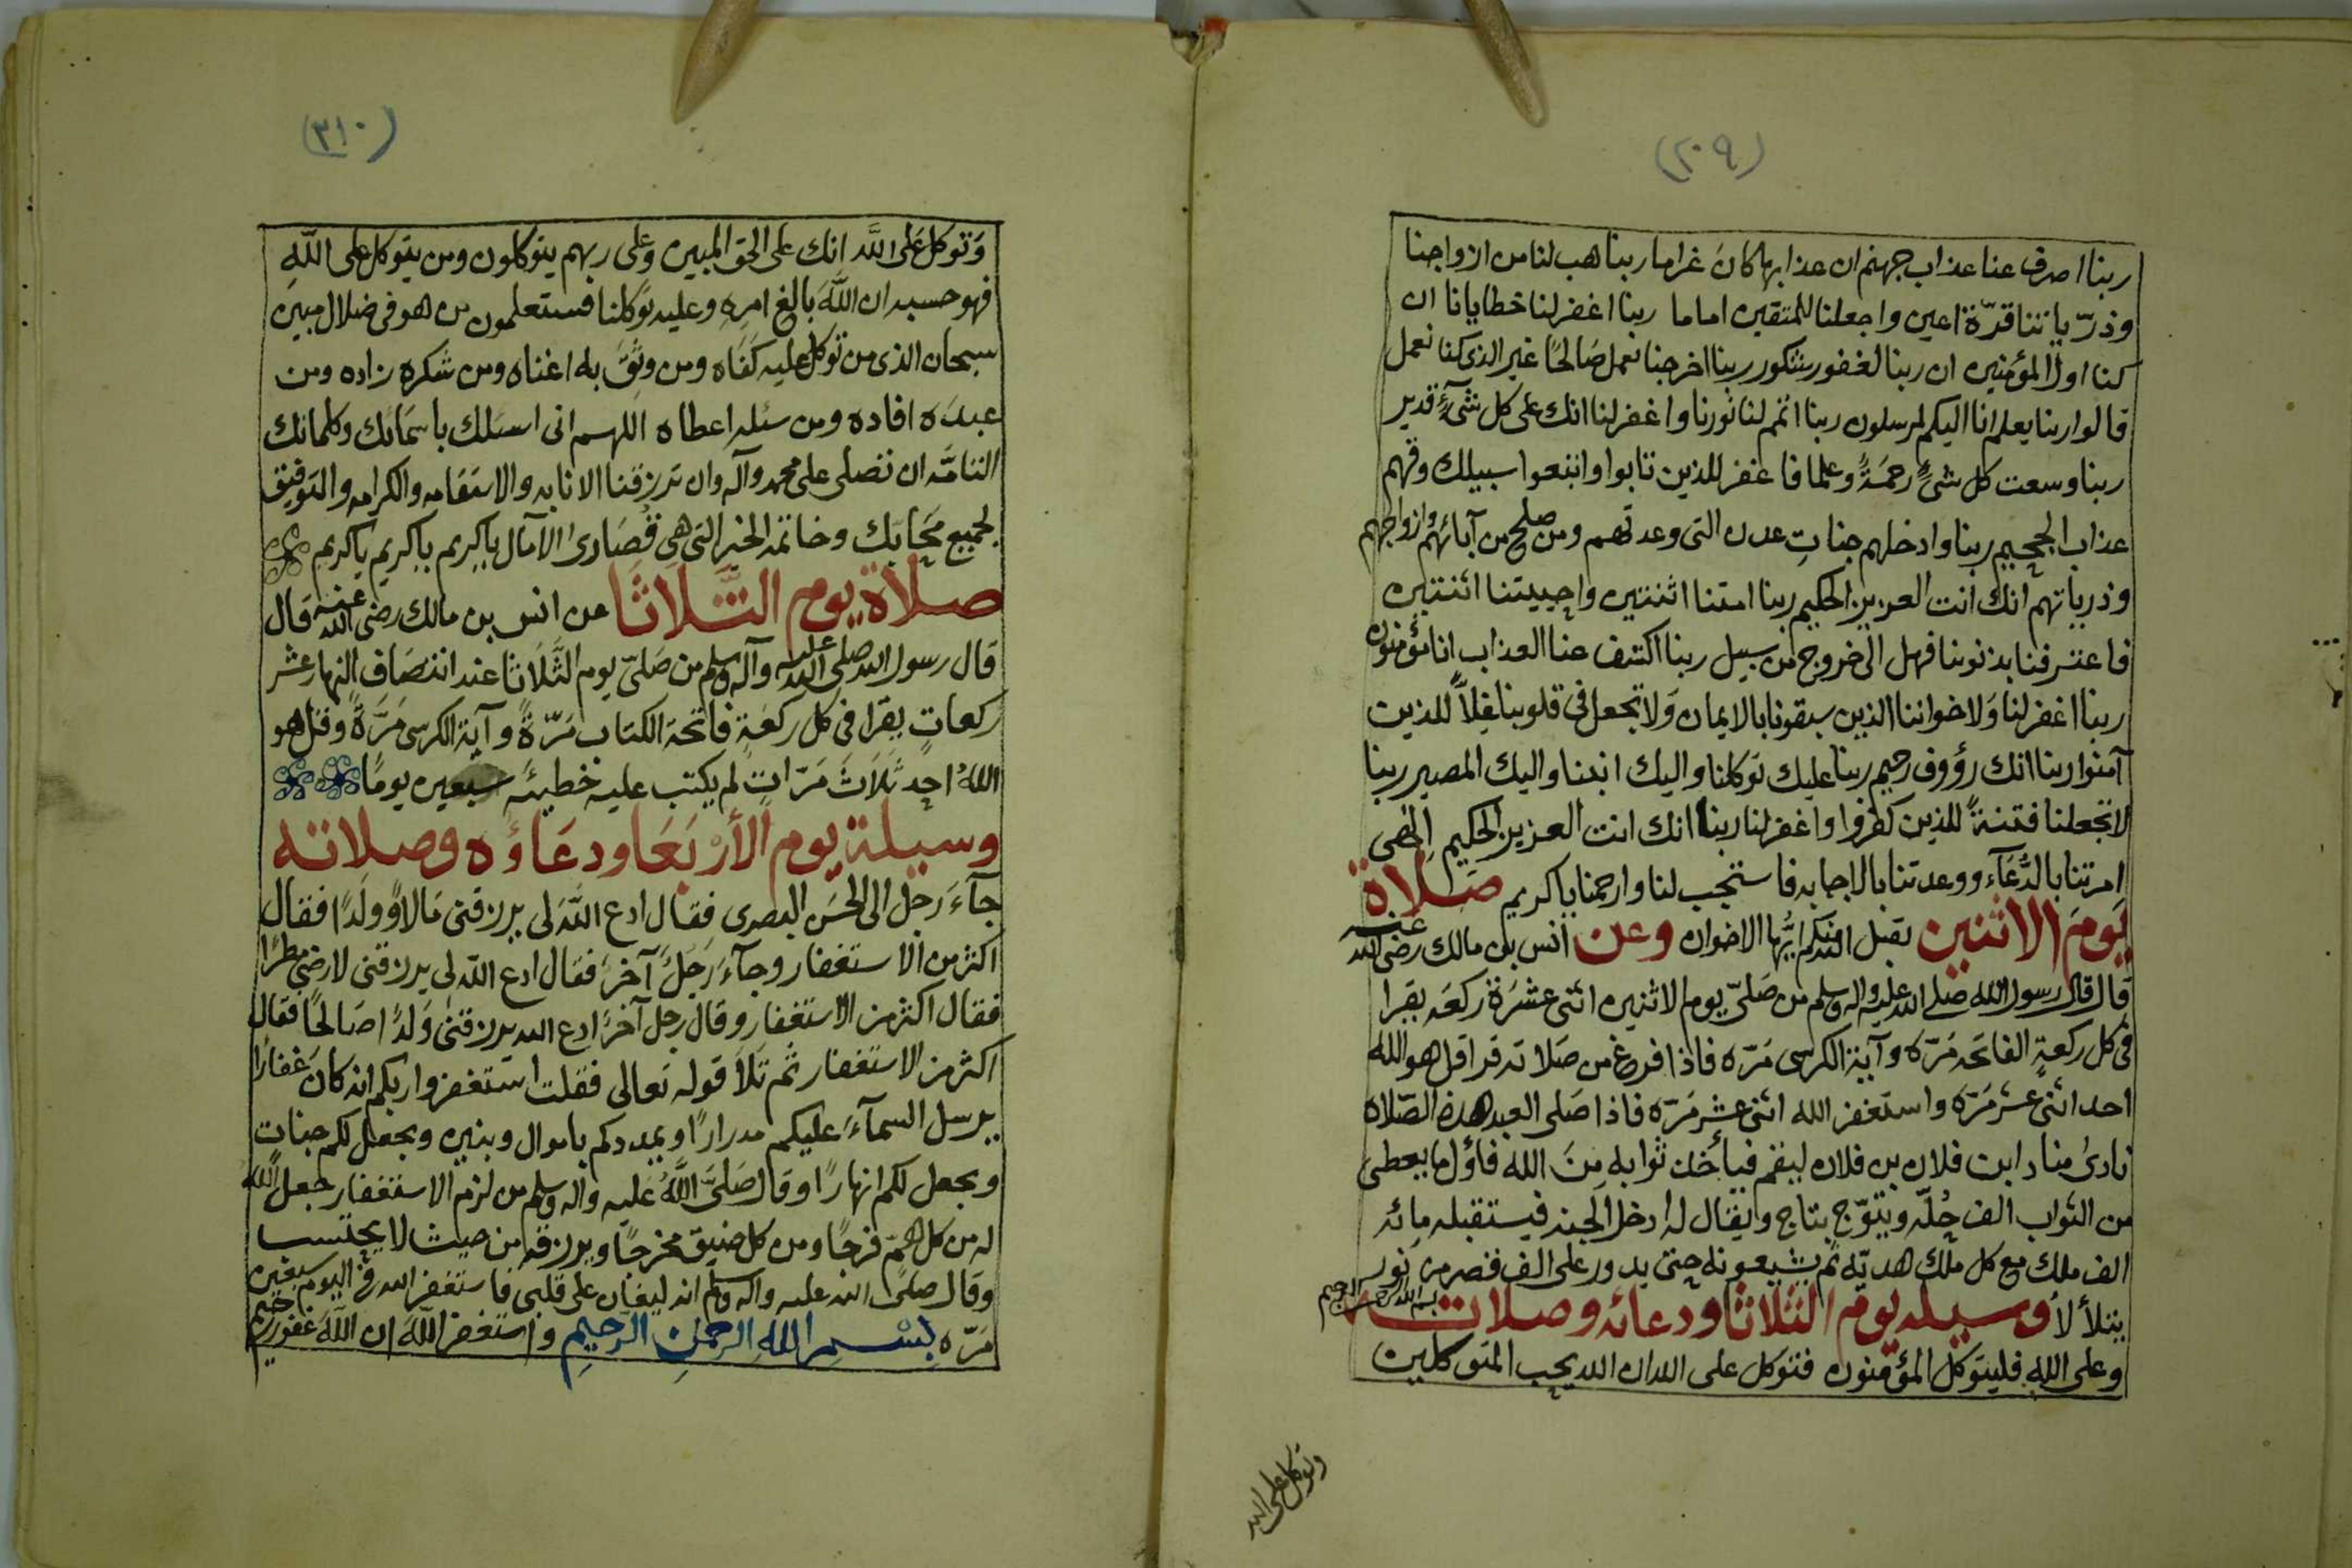 (٢٠٩)
ربنا اصرف عنا عذاب جهنم ان عذابها كانَ غراما ربنا هب لنا من ازواجنا
وذرّياتنا قرّة اعين واجعلنا للمتقين اماما ربنا اغفر لنا خطايانا ان
كنا اول المؤمنين ان ربنا لغفور شكور ربنا اخرجنا نعمل صَالحًا غير الذى كنا نعمل
قالوا ربنا يعلم انا اليكم لمرسلون ربنا اتمم لنا نورنا واغفر لنا انك على كل شىءٍ قدير
ربنا وسعت كل شىءٍ رحمَةً وعلما فاغفر للذين تابوا واتبعوا سبيلك وقهم
عذاب الجحيم ربنا وادخلهم جناتِ عدن التى وعدتهم ومن صلح من آبائهم وازواجهم
وذرياتهم انك انت العزيز الحكيم ربنا امتنا اثنتين واحييتنا اثنتين
فاعترفنا بذنوبنا فهل الى خروج من سبيل ربنا اكشف عنا العذاب انا مؤمنون
ربنا اغفر لنا وَلاخواننا الذين سبقونا بالايمان وَلا تجعل فى قلوبنا غِلاًّ للذين
آمنوا ربنا انك رؤوف رحيم ربنا عليك توكلنا واليك انبنا واليك المصير ربنا
لا تجعلنا فتنةً للذين كفروا واغفر لنا ربنا انك انت العزيز الحكيم الهى
امرتنا بالدُّعَآء ووعدتنا بالاجابه فاستجب لنا وارحمنا يا كريم صَلاة
يَومَ الاثنين تقبل الله منكم ايُّها الاخوان وعن أنس بن مالك رضى الله عنه
قال قال رسول الله صلى الله عليه واله وسلم من صَلىّ يوم الاثنين اثنى عشَرَة ركعَه يقرا
فى كل ركعةٍ الفاتحَه مَرّه وآية الكرسى مَرّه فاذا فرغ من صَلاته قرا قل هو الله
احد اثنى عشر مَرّه واستغفر الله اثنى عشر مَرّه فاذا صَلى العبد هذه الصّلاه
نادىٰ مناد اين فلان بن فلان ليقم فيأخذ ثوابه مِنَ الله فأوّل ما يعطى
من الثواب الف حُلّه ويتوّج بتاج ويقال له ادخل الجنه فيستقبله مائه
الف ملك مع كل ملك هديّه ثم يشيعونه حتى يدور على الف قصر من نور
يتلألأ وسيله يوم الثلاثا ودعائه وصلاته بسم الله الرحمن الرحيم
وعلى اللهِ فليتوكل المؤمنون فتوكل على الله ان الله يحب المتوكلين
وتوكل على الله
(٣١٠)
وَتوكل عَلى اللَّه انك على الحق المبين وَعلى ربهم يتوكلون ومن يتوكل على اللّهِ
فهو حسبه ان اللَّهَ بالغ امرِهِ وعليه توكلنا فستعلمون من هو فى ضلال مبين
سبحان الذى من توكل عليه كفَاه ومن وثقَ به اغناه ومن شكره زاده ومن
عبدَه افاده ومن سئله اعطاه اللهم انى اسئلك باسمَائك وكلماتك
التامَّه ان تصلى على محمد وآله وان ترزقنا الانابه والاستقامه والكرامه والتوفيق
لجميع محَابك وخاتمة الخير التى هى قُصَارىٰ الآمال يا كريم يا كريم يا كريم
صلاة يوم الثَّلاثَا عن انس بن مالك رضى الله عنه قال
قال رسول الله صلى الله عليه وآله وسلم من صَلىّ يوم الثَّلاثا عند انتصَاف النهار عشر
ركعاتٍ يقرا فى كل ركعةٍ فاتحة الكتاب مَرّةً وآية الكرسى مَرَّةً وقل هو
اللهُ احد ثلاثَ مَرّاتٍ لم يكتب عليه خطيئه سبعين يومًا
وسيلة يوم الأرْبَعَا ودعَاؤه وصلاته
جآءَ رَجل الى الحسَن البصرى فقال ادع اللّهَ لى يرزقنى مَالاً ووَلدًا فقال
اكثر من الاستغفار وجآءَ رَجلَ آخر فقال ادع اللّه لى يرزقنى لارضى مطرًا
فقال اكثر من الاستغفار وقال رجل آخر ادع الله يرزقنى وَلدًا صَالحًا فقال
اكثر من الاستغفار ثم تلاَ قوله تعالى فقلت استغفروا ربكم انه كان غفارًا
يرسل السمآءَ عليكم مدرارًا ويمددكم باموال وبنين ويجعل لكم جناتٍ
ويجعل لكم انهارًا وقال صَلىَّ اللَّهُ عليه واله وسلم من لزم الاستغفار جعل اللّه
له من كل همّ فرجًا ومن كل ضيق مخرجًا ويرزقه من حيث لا يحتسب
وقال صلىّ الله عليه واله وسلم انه ليغان على قلبى فاستغفر الله فى اليوم سبعين
مَرّه بِسْمِ اللهِ الرحمٰنِ الرحيمِ واستغفر اللّهَ ان اللّهَ غفور رحيم